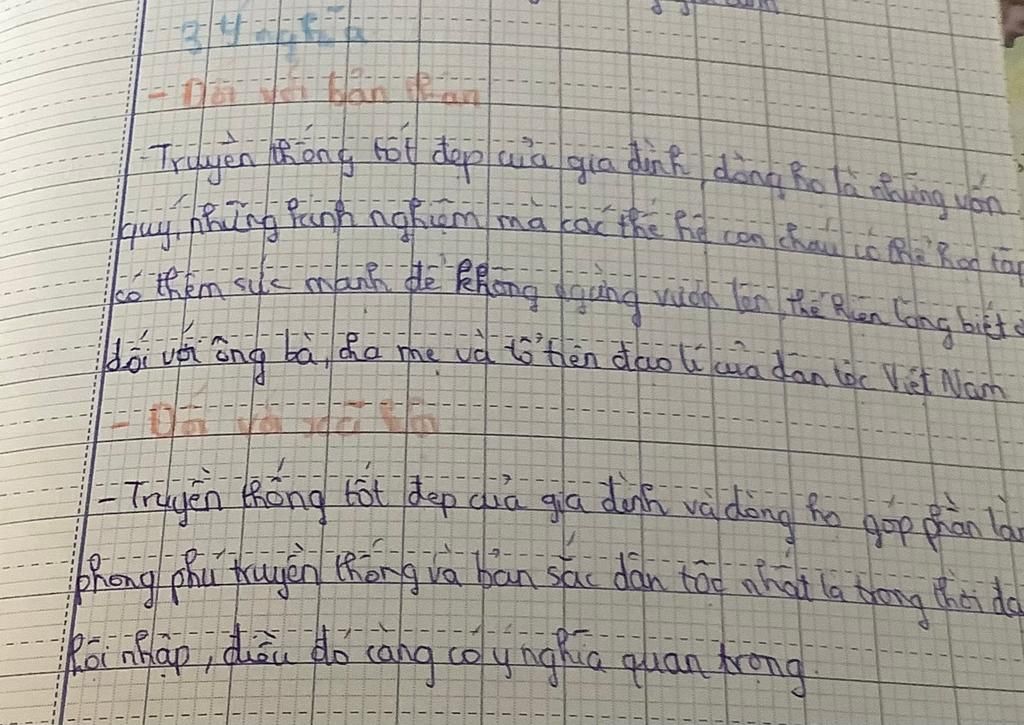 3 Ý nghĩa
- Đối với bản thân
- Truyền thống tốt đẹp của gia đình, dòng họ là những vốn
quý, những kinh nghiệm mà các thế hệ con cháu có thể học tập
có thêm sức mạnh để không ngừng vươn lên, thể hiện lòng biết
đối với ông bà, cha mẹ và tổ tiên đạo lí của dân tộc Việt Nam
- Đối với xã hội
- Truyền thống tốt đẹp của gia đình và dòng họ góp phần làm
phong phú truyền thống và bản sắc dân tộc nhất là trong thời đại
hội nhập, điều đó càng có ý nghĩa quan trọng.